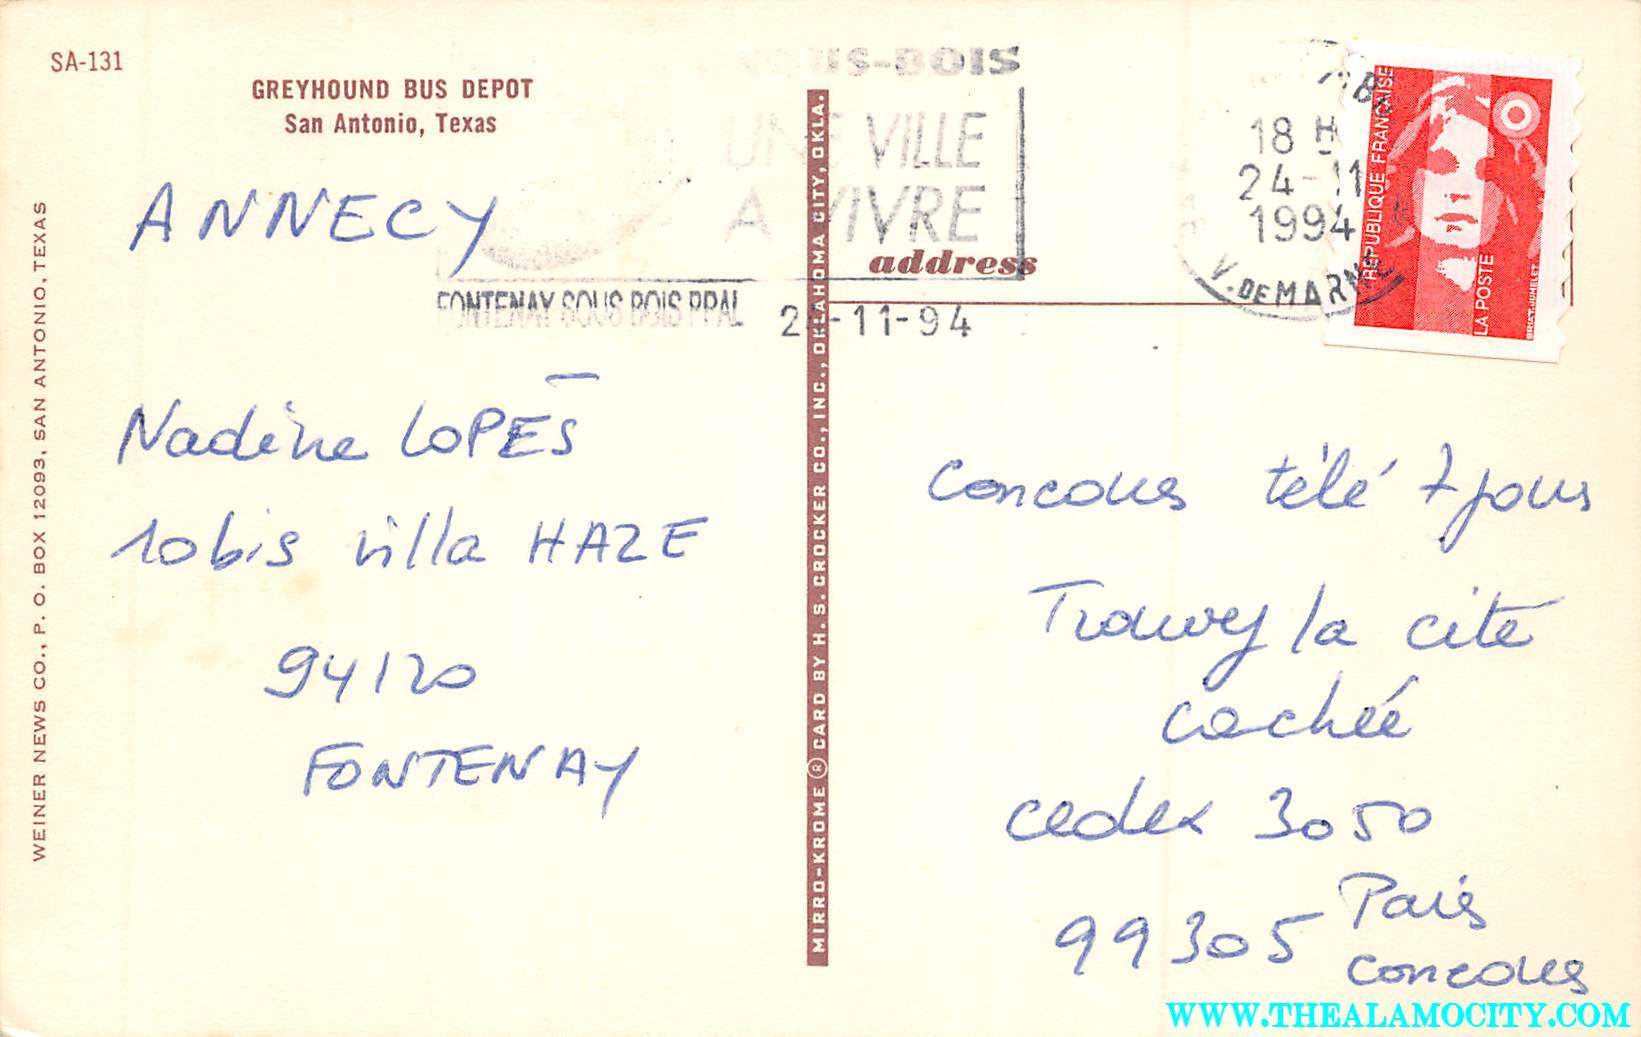 SA-131
GREYHOUND BUS DEPOT
San Antonio, Texas
WEINER NEWS CO., P. O. BOX 12093, SAN ANTONIO, TEXAS
ANNECY
Nadine LOPES
10bis villa HAZE
94120
FONTENAY
MIRRO-KROME ® CARD BY H. S. CROCKER CO., INC., OKLAHOMA CITY, OKLA.
US-BOIS
UNE VILLE
A VIVRE
FONTENAY SOUS BOIS PPAL
-11-94
address
18 H
24-11
1994
V. DE MARNE
REPUBLIQUE FRANÇAISE
LA POSTE
BRIAT-JUMELET
Concours télé 7 jours
Trouvez la cité
cachée
cedex 3050
99305 Paris
concours
WWW.THEALAMOCITY.COM